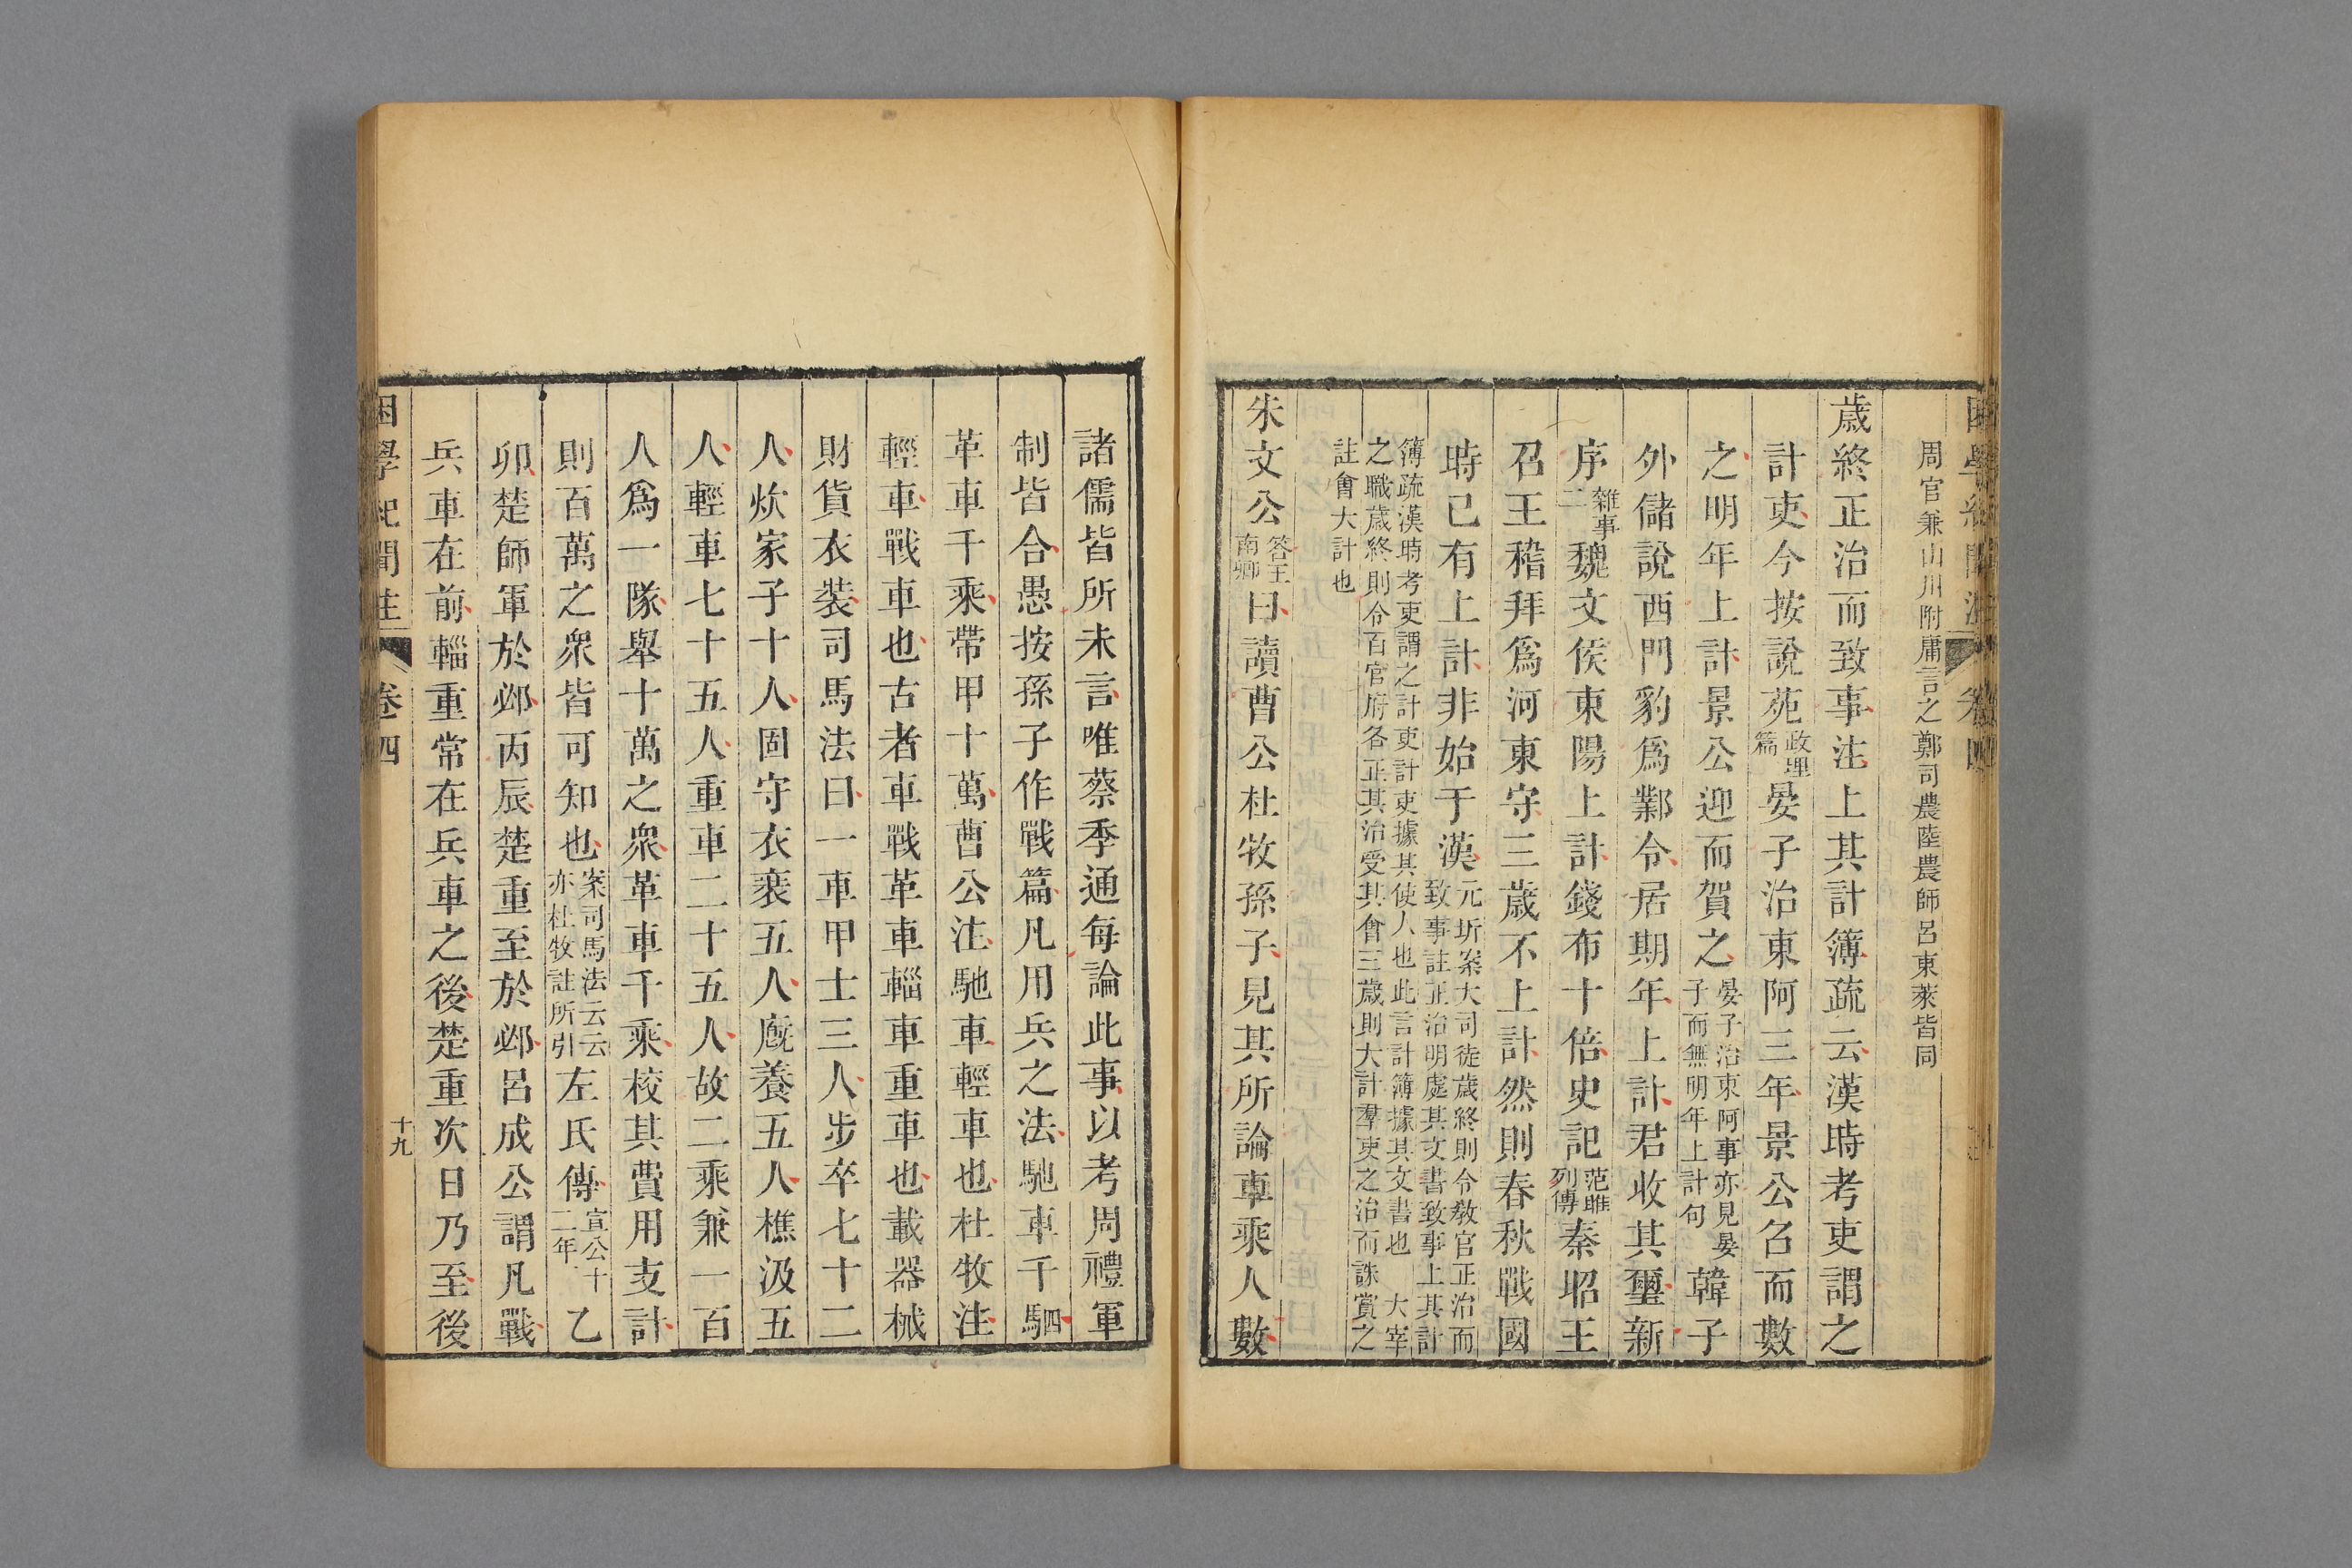 周官兼山川附庸言之鄭司農陸農師呂東萊皆同
歲終正治而致事注上其計簿疏云漢時考吏謂之
計吏今按說苑政理篇晏子治東阿三年景公召而數
之明年上計景公迎而賀之晏子治東阿事亦見晏子而無明年上計句韓子
外儲說西門豹爲鄴令居期年上計君收其璽新
序雜事二魏文侯東陽上計錢布十倍史記范雎列傳秦昭王
召王稽拜爲河東守三歲不上計然則春秋戰國
時已有上計非始于漢元圻案大司徒歲終則令敎官正治而致事註正治明處其文書致事上其計
簿疏漢時考吏謂之計吏計吏據其使人也此言計簿據其文書也 大宰之職歲終則令百官府各正其治受其會三歲則大計羣吏之治而誅賞之
註會大計也
朱文公答王南卿曰讀曹公杜牧孫子見其所論車乘人數
諸儒皆所未言唯蔡季通每論此事以考周禮軍
制皆合愚按孫子作戰篇凡用兵之法馳車千駟
革車千乘帶甲十萬曹公注馳車輕車也杜牧注
輕車戰車也古者車戰革車輜車重車也載器械
財貨衣裝司馬法曰一車甲士三人步卒七十二
人炊家子十人固守衣裘五人廄養五人樵汲五
人輕車七十五人重車二十五人故二乘兼一百
人爲一隊舉十萬之衆革車千乘校其費用支計
則百萬之衆皆可知也案司馬法云云亦杜牧註所引左氏傳宣公十二年乙
卯楚師軍於邲丙辰楚重至於邲呂成公謂凡戰
兵車在前輜重常在兵車之後楚重次日乃至後
困學紀聞注 卷四 十九